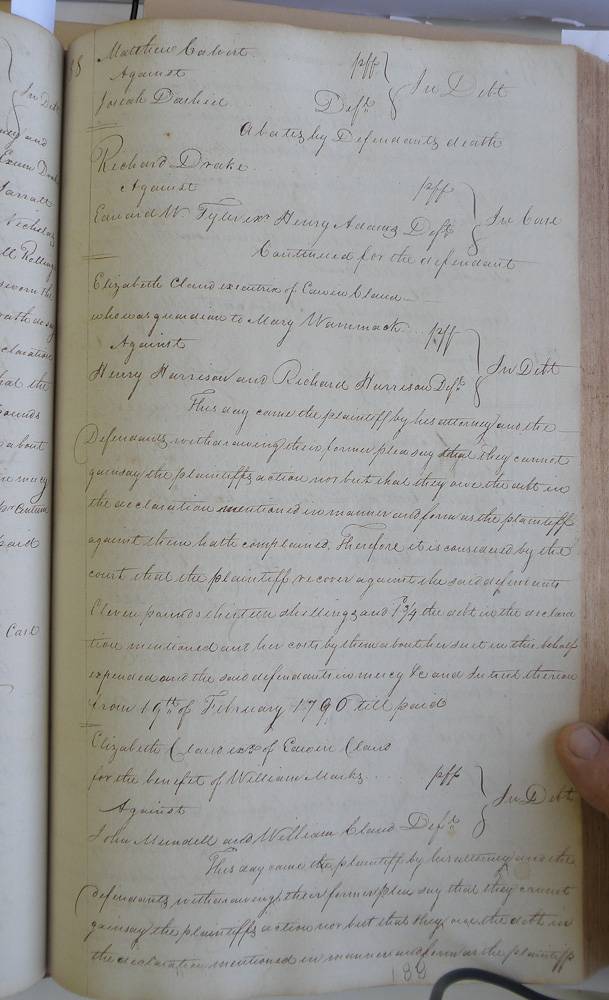 Matthew Calvert
plff
Against
In Debt
Josiah Dashiel
Deft
Abates by Defendants death
Richard Drake
Against
plff
In Case
Edward W. Tyler exr Henry Adams Deft
Continued for the defendant
Elizabeth Claud executrix of Edwin Claud
who was guardian to Mary Wammack
plff
Against
In Debt
Henry Harrison and Richard Harrison Defts
This day came the plaintiff by his attorney and the
Defendants withdrawing their former plea say that they cannot
gainsay the plaintiffs action nor but that they owe the debt in
the declaration mentioned in manner and form as the plaintiff
against them hath complained. Therefore it is considered by the
court that the plaintiff recover against the said defendants
Eleven pounds thirteen shillings and the debt in the declara
tion mentioned and her costs by them about her suit in this behalf
expended and the said defendants in mercy &c and thereon
from 19th of February 1790 till paid
Elizabeth Claud exx of Edwin Claud
for the benefit of William Marks
plff
Against
In Debt
John Mundell and William Claud Defts
This day came the plaintiff by his attorney and the
defendants withdrawing their former plea say that they cannot
gainsay the plaintiffs action nor but that they owe the debt in
the declaration mentioned in manner and form as the plaintiff
189